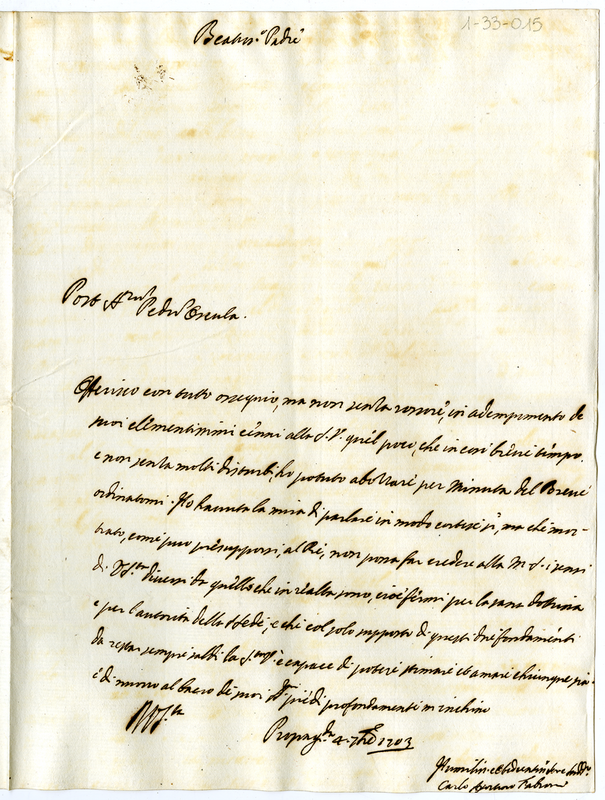 1-33-015
Beatiss.º Padre
Post Pedum Oscula.
Offerisco con tutto ossequio, ma non senza rossore, in adempimento de
suoi clementissimi cenni alla S. V. quel poco, che in così breve tempo,
e non senza molti disturbi, ho potuto abozzare per Minuta del Breve
ordinatomi. Ho havuta la mira di parlare in modo cortese sì, ma che mos-
trato, come può presupporsi, al Rè, non possa far credere alla M. S. i sensi
di V. S.tà diversi da quello che in realtà sono, cioè fermi per la sana dottrina
e per l'autorità della S. Sede, e che col solo supposto di questi due fondamenti
da restar sempre saldi la S. è capace di potere stimare et amare chiunque
e di nuovo al bacio de suoi piedi profondamente m'inchino
Propag.da 4. 7bre 1703
Carlo Agostino Fabroni